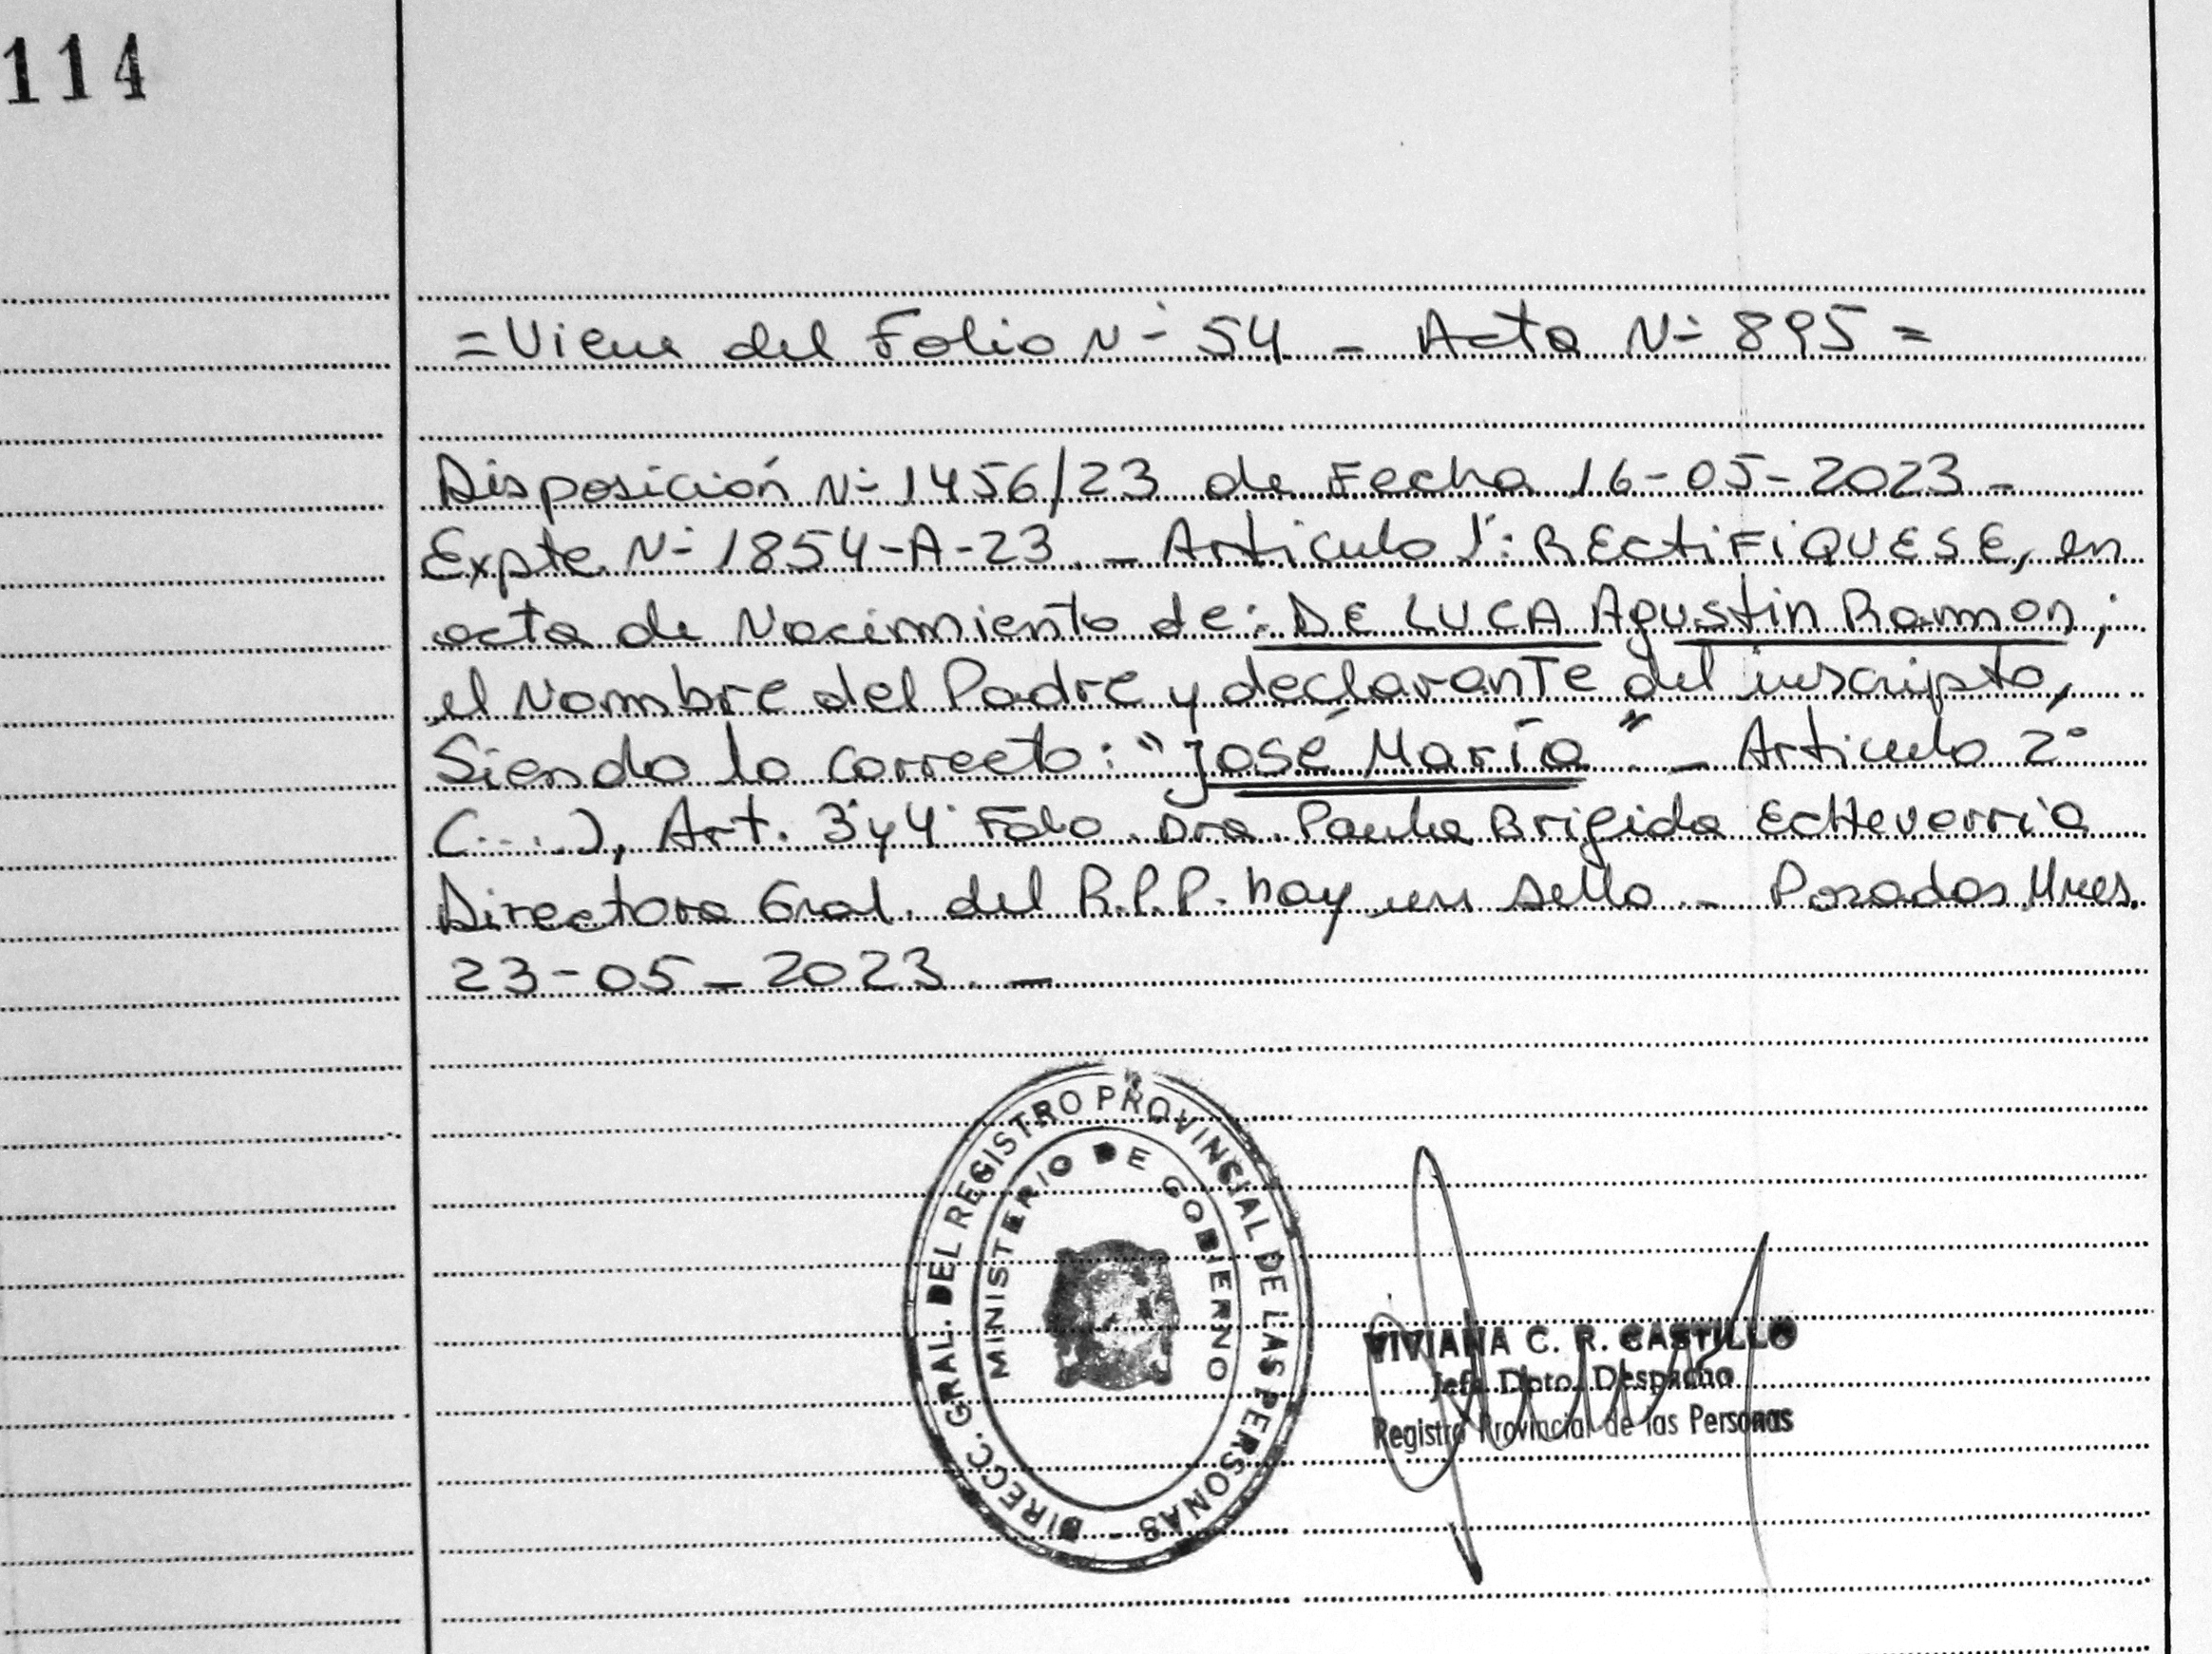 114
=Viene del Folio Nº 54 - Acta Nº 895=
Disposición Nº 1456/23 de Fecha 16-05-2023-
Expte. Nº 1854-A-23. - Artículo 1º: RECTIFIQUESE, en
acta de Nacimiento de: DE LUCA Agustin Ramon;
el Nombre del Padre y declarante del inscripto,
Siendo lo correcto: "José María" - Articulo 2º
(....), Art. 3º y 4º Fdo. Dra. Paula Brigida Echeverria
Directora Gral. del R.P.P. hay un sello - Posadas, Mnes.
23-05-2023. -
DIRECC. GRAL. DEL REGISTRO PROVINCIAL DE LAS PERSONAS -
MINISTERIO DE GOBIERNO
VIVIANA C. R. CASTILLO
Jefa Dpto. Despacho
Registro Provincial de las Personas